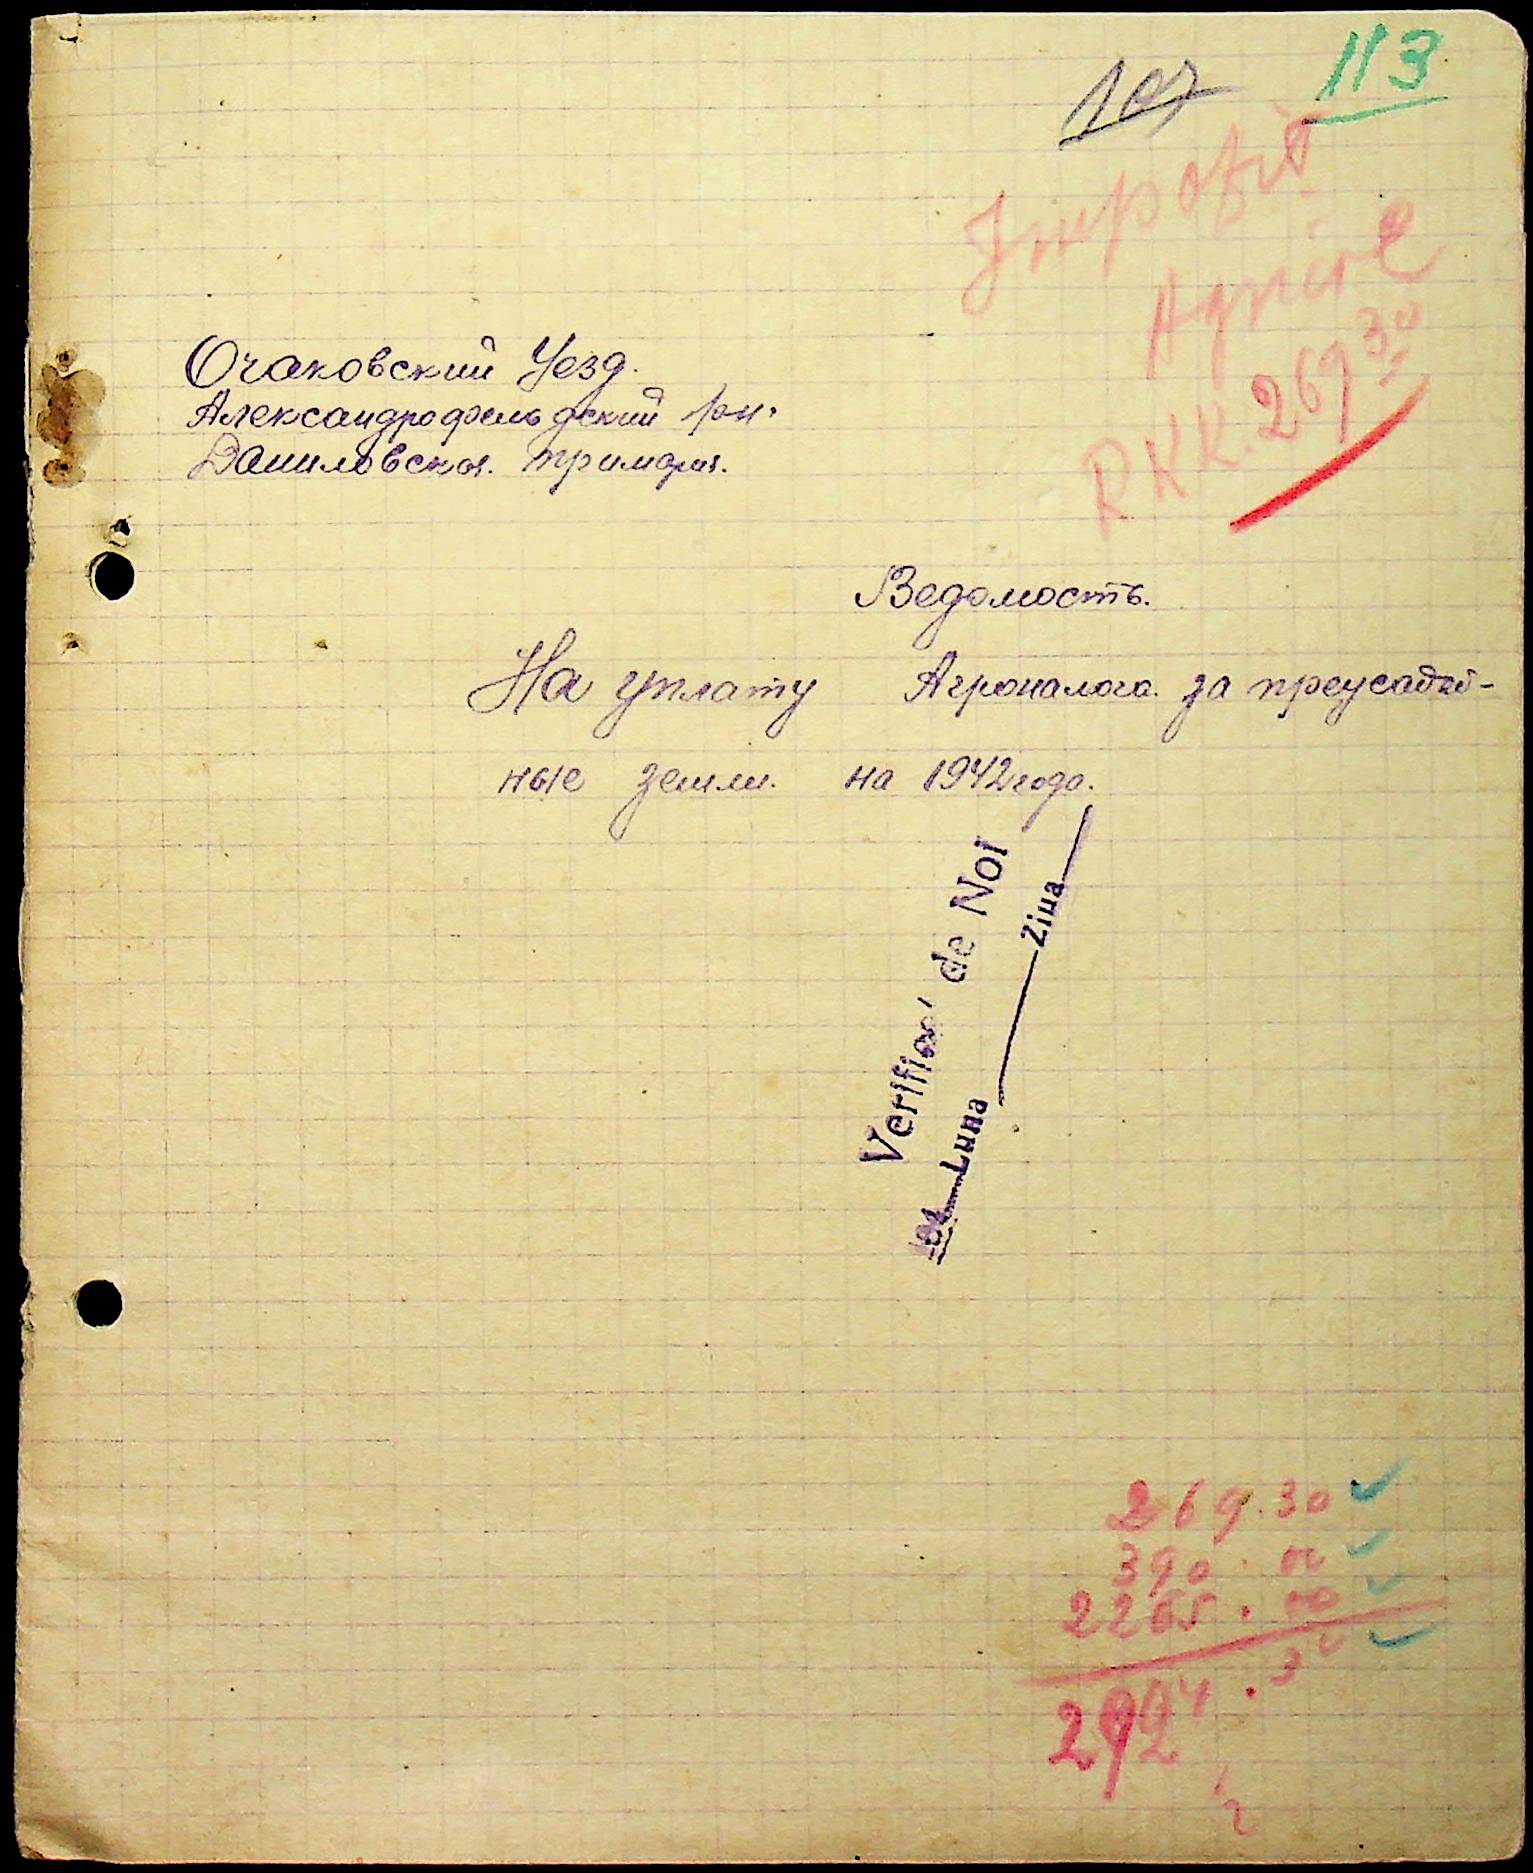 107
113
Impozit
Agricol
RKK. 269 30
Очаковский Уезд.
Александрофельдский рн.
Даниловская примария.
Ведомость.
На уплату Агроналога за преусадеб-
ные земли. на 1942 года.
Verificat de Noi
194 Luna Ziua
269.30
390.00
2265.00
2924.30